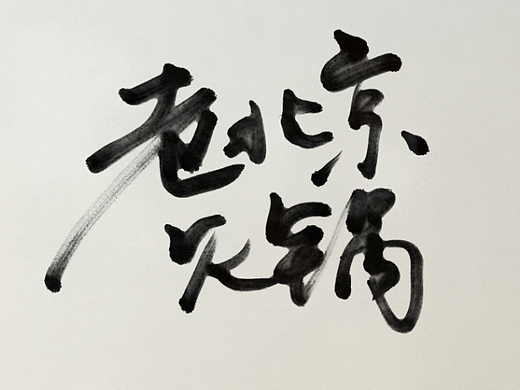 老北京
火锅